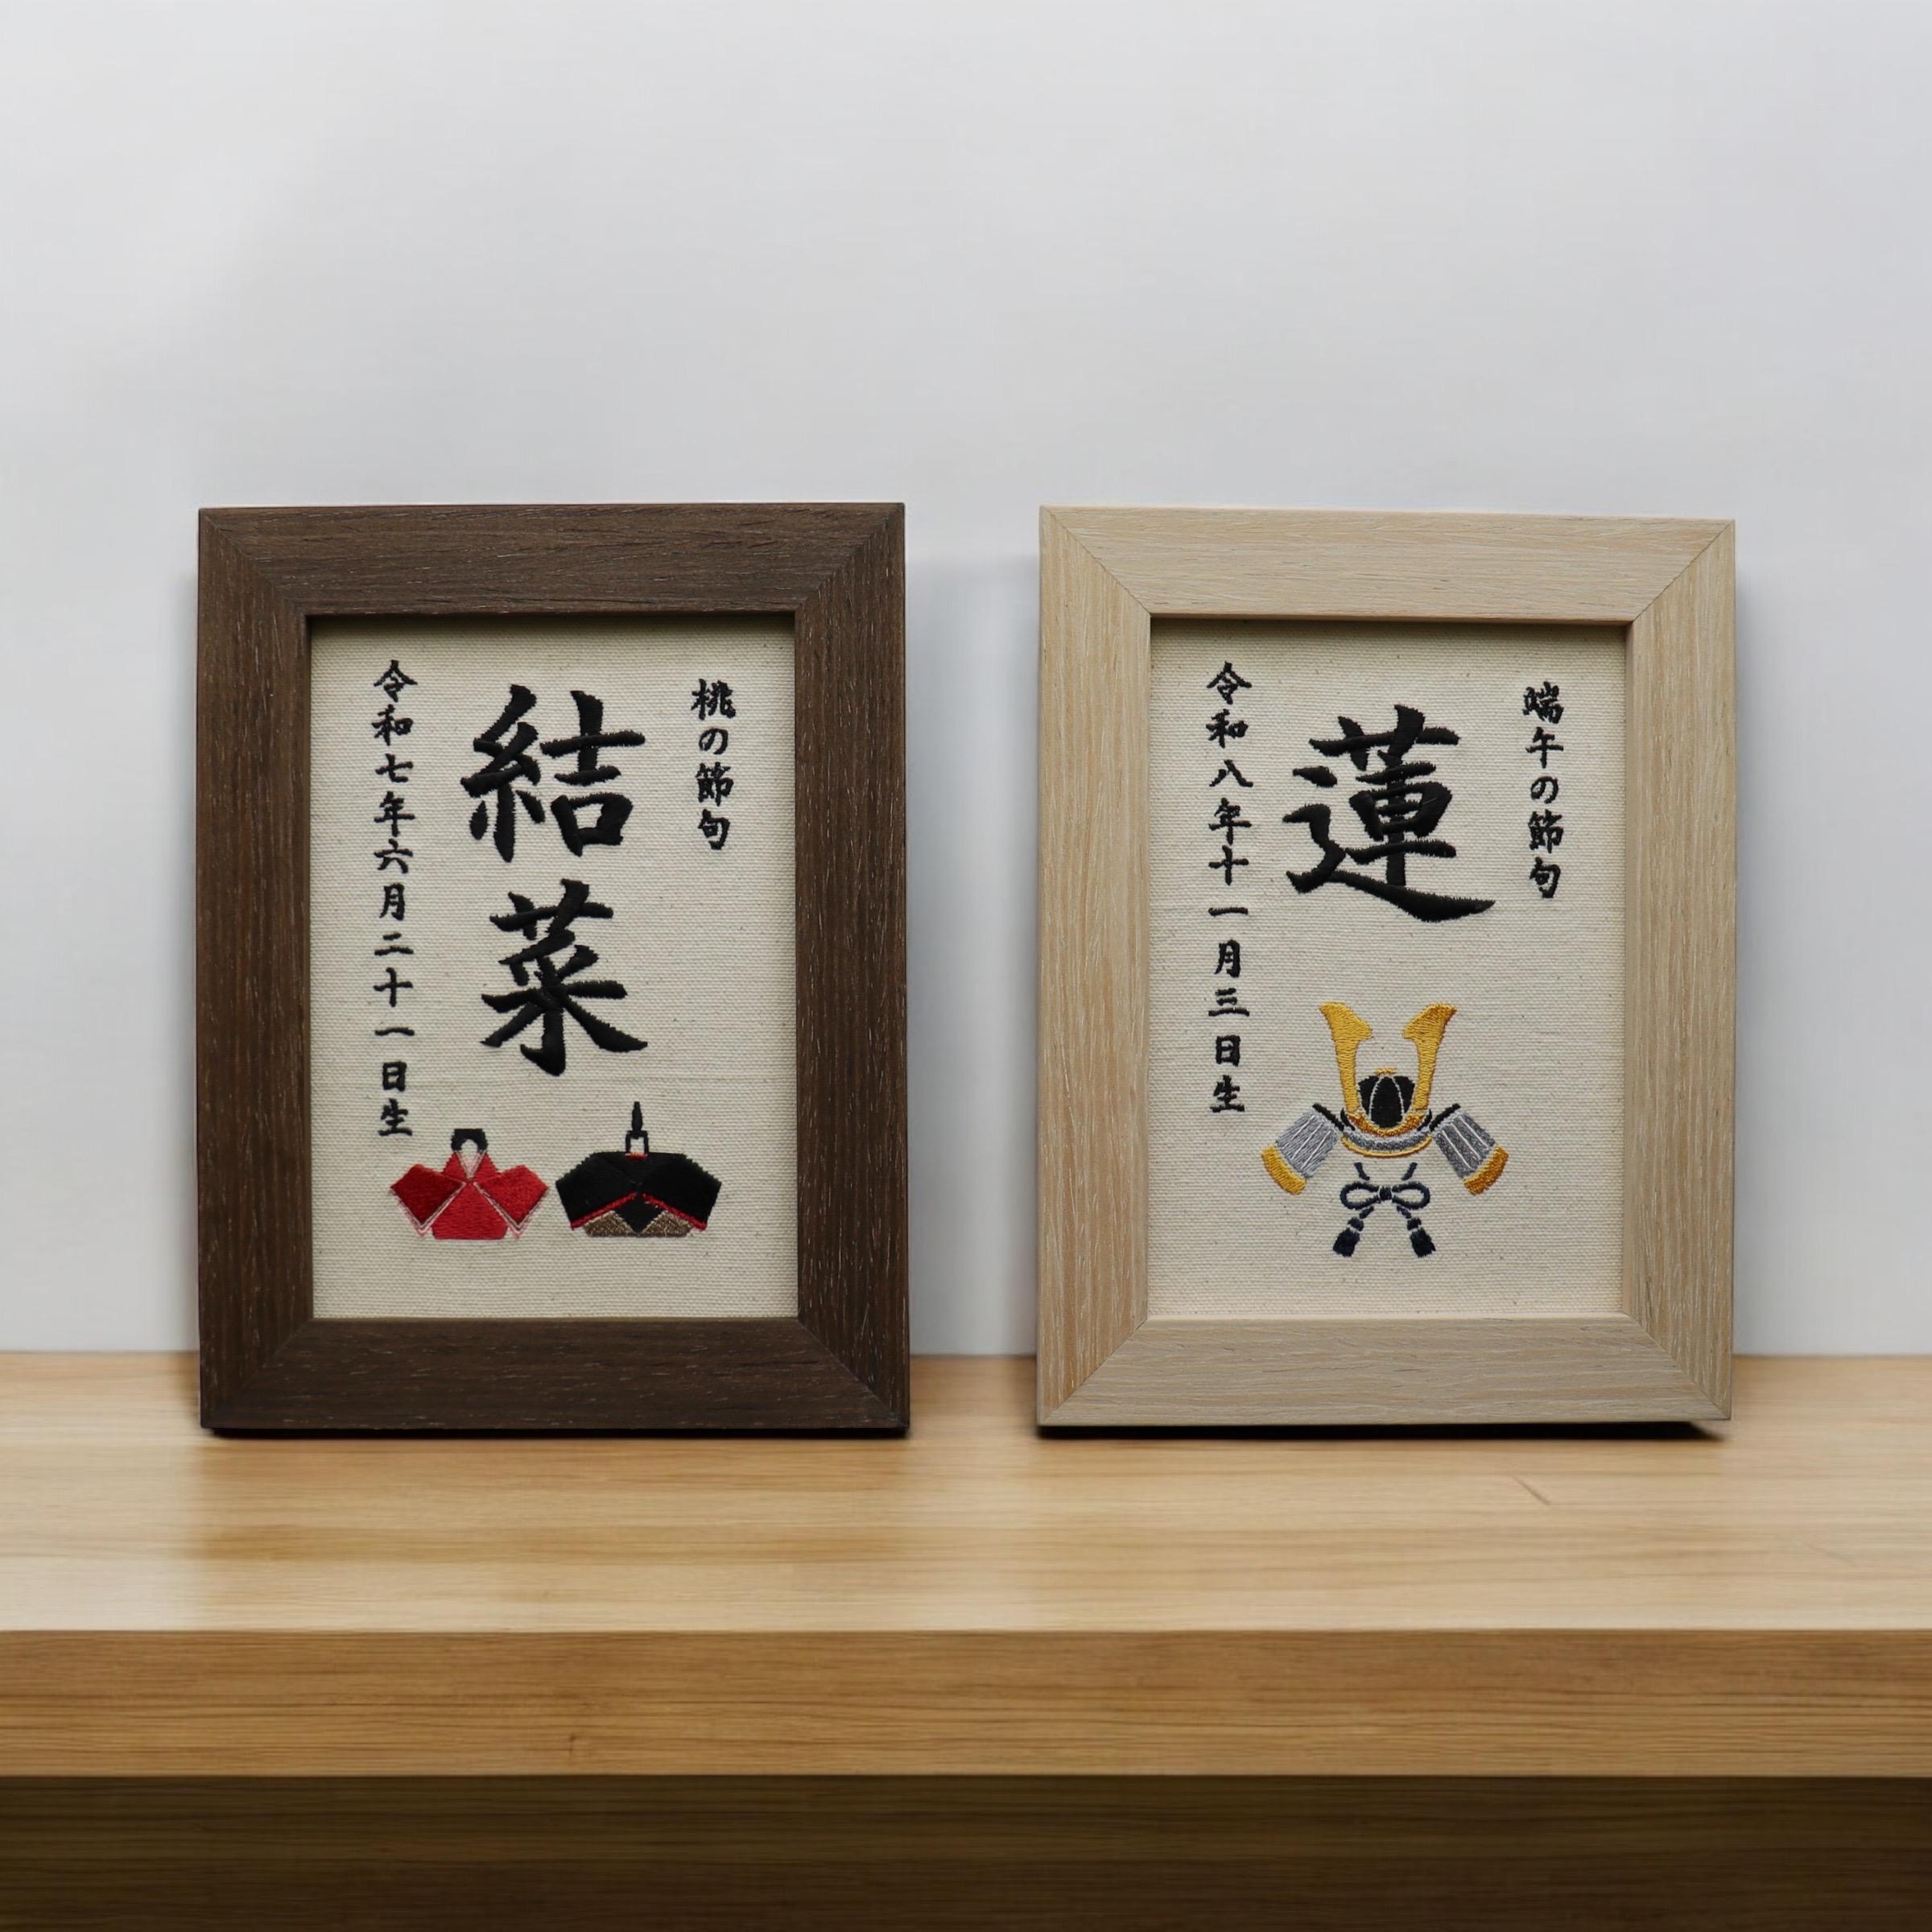 桃の節句
結菜
令和七年六月二十一日生
端午の節句
蓮
令和八年十一月三日生